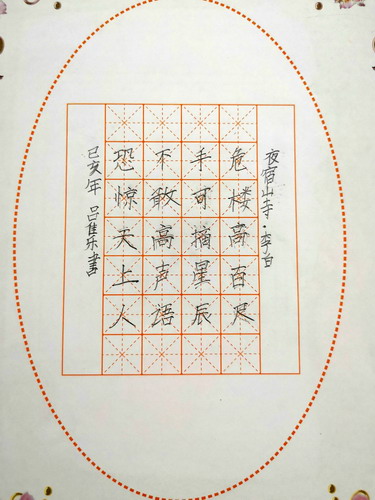 夜宿山寺·李白
危楼高百尺
手可摘星辰
不敢高声语
恐惊天上人
己亥年 吕隹乐書